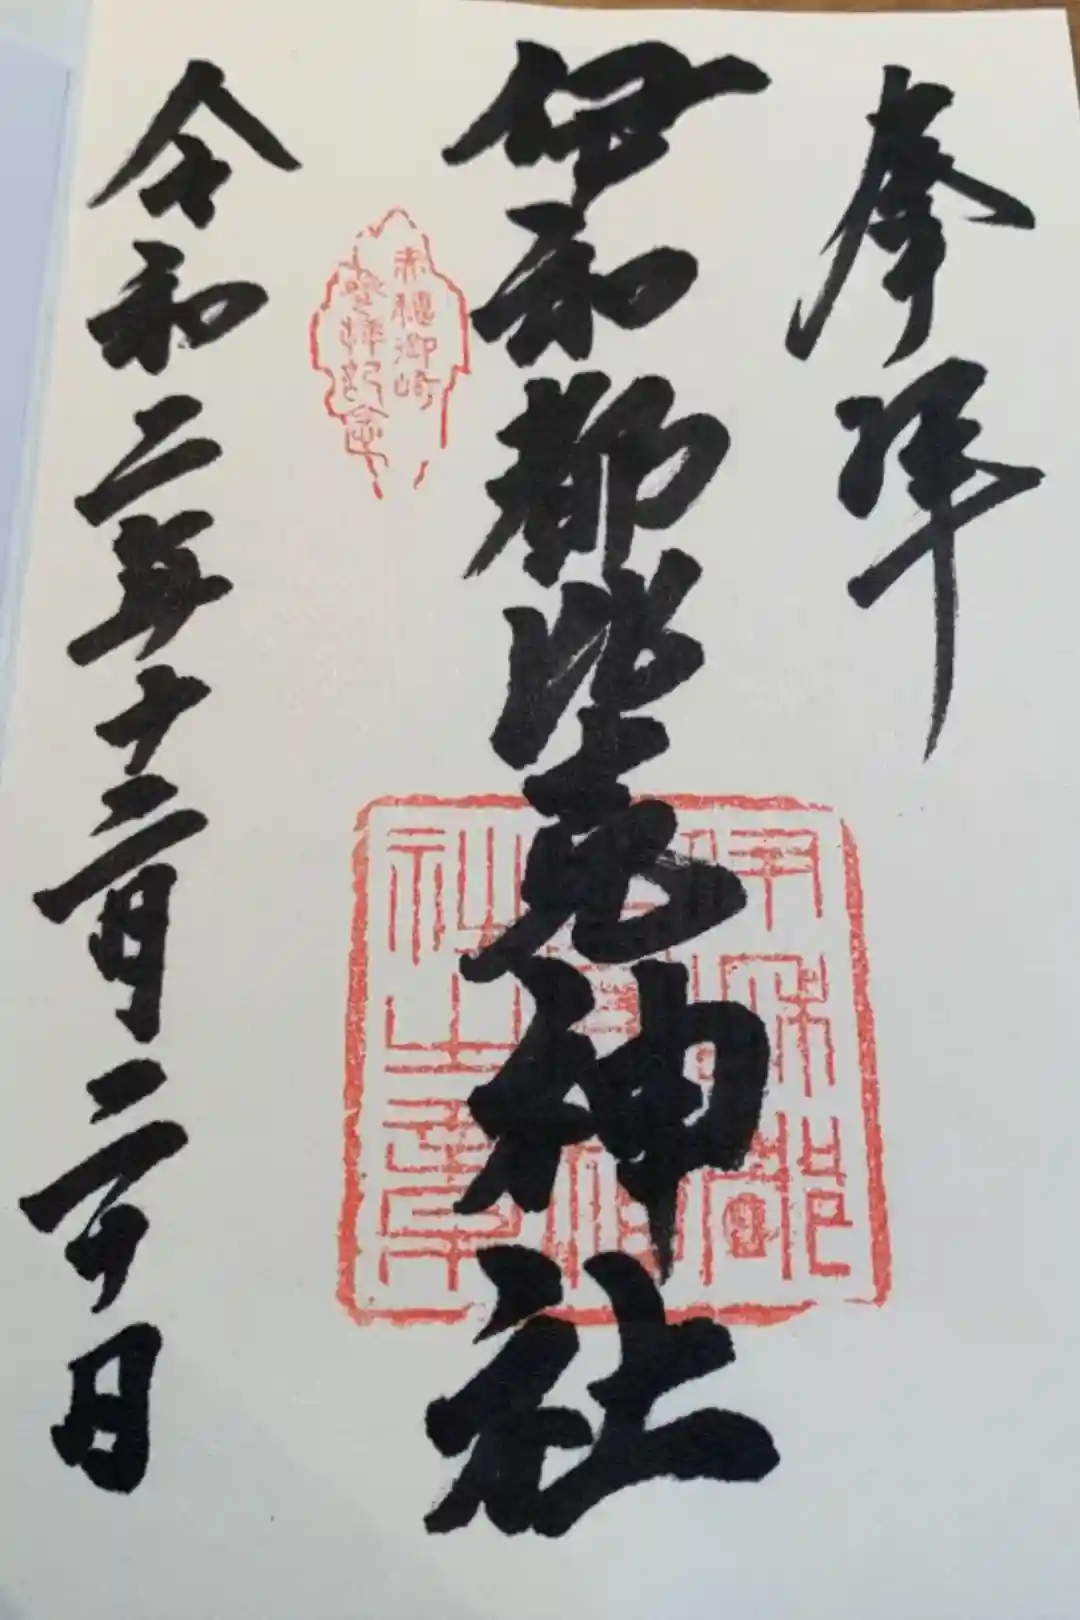 奉拝
伊和都比売神社
赤穂御崎
参拝記念
伊和都
社之章
令和二年十二月二十日